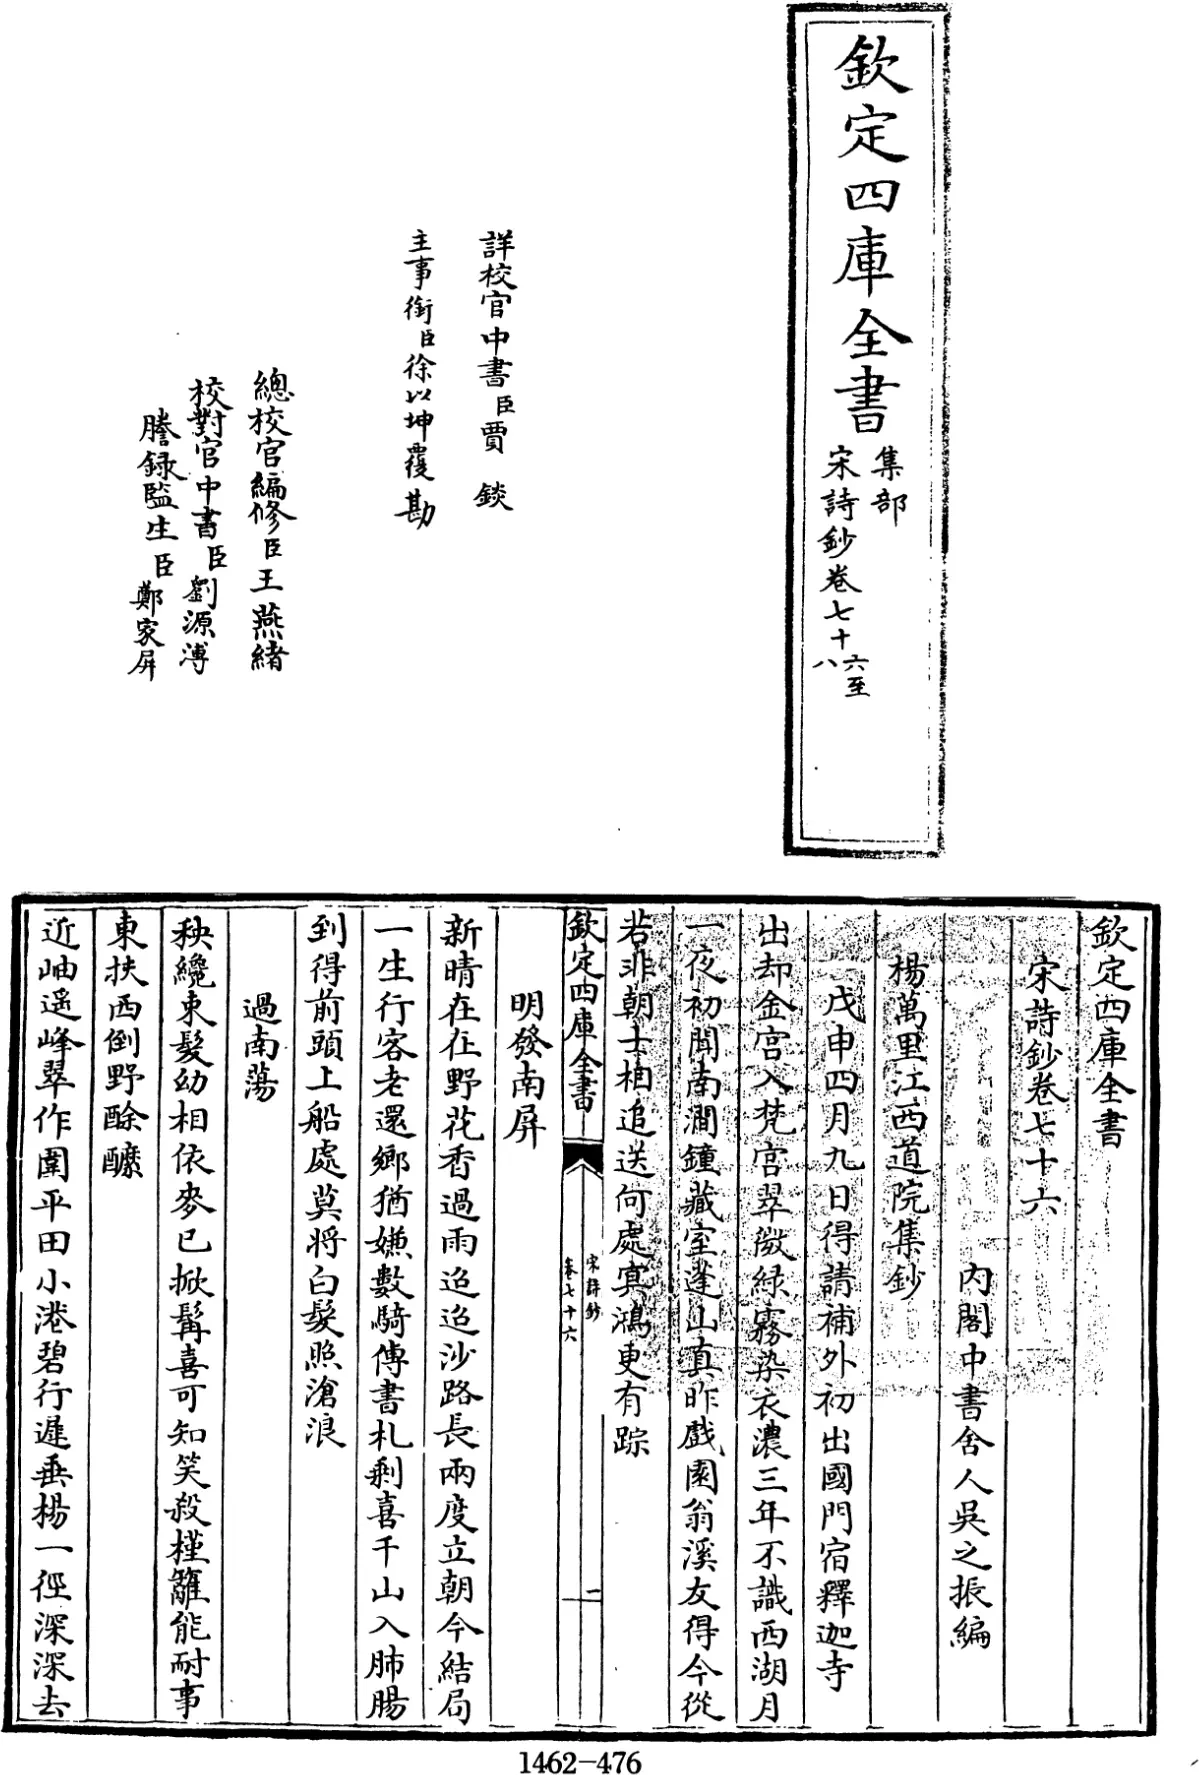 欽定四庫全書
集部
宋詩鈔卷七十六至
八
詳校官中書臣賈錟
主事銜臣徐以坤覆勘
總校官編修臣王燕緒
校對官中書臣劉源溥
謄錄監生臣鄭家屏
欽定四庫全書
宋詩鈔卷七十六
內閣中書舍人吳之振編
楊萬里江西道院集鈔
戊申四月九日得請補外初出國門宿釋迦寺
出却金宮入梵宮翠微綠霧染衣濃三年不識西湖月
一夜初聞南澗鐘藏室蓬山真昨戲園翁溪友得今從
若非朝士相追送何處冥鴻更有踪
欽定四庫全書
宋詩鈔
卷七十六
二
明發南屏
新晴在在野花香過雨迢迢沙路長兩度立朝今結局
一生行客老還鄉猶嫌數騎傳書札剩喜千山入肺腸
到得前頭上船處莫將白髮照滄浪
過南蕩
秧纔束髮幼相依麥已掀髯喜可知笑殺槿籬能耐事
東扶西倒野酴醾
近岫遙峰翠作圍平田小港碧行遲垂楊一徑深深去
1462-476